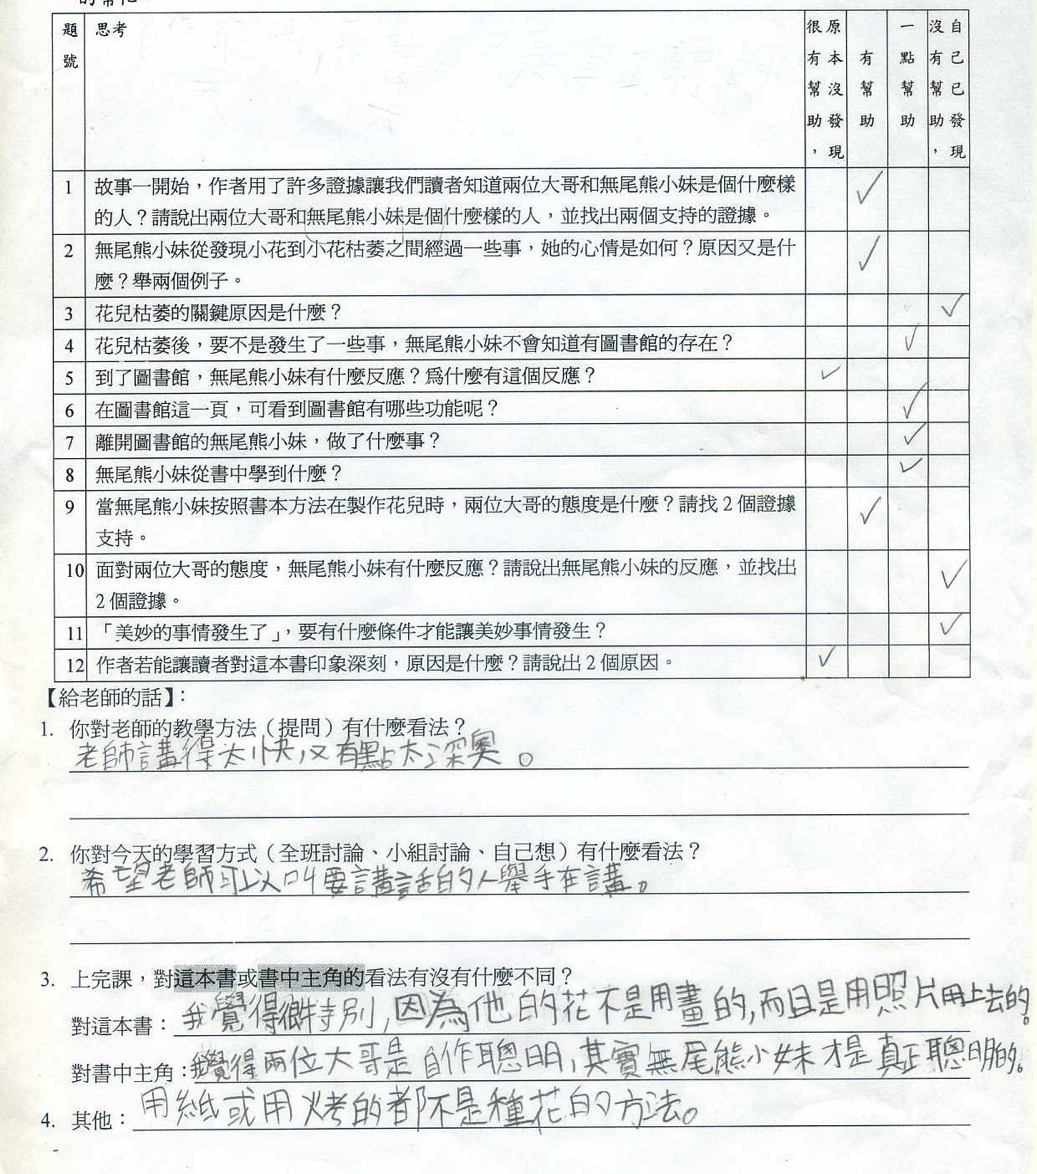 題號 思考 很有幫助，原本沒發現 有幫助 一點幫助 沒有幫助，自己已發現
1 故事一開始，作者用了許多證據讓我們讀者知道兩位大哥和無尾熊小妹是個什麼樣
的人？請說出兩位大哥和無尾熊小妹是個什麼樣的人，並找出兩個支持的證據。 ✓
2 無尾熊小妹從發現小花到小花枯萎之間經過一些事，她的心情是如何？原因又是什
麼？舉兩個例子。 ✓
3 花兒枯萎的關鍵原因是什麼？ ✓
4 花兒枯萎後，要不是發生了一些事，無尾熊小妹不會知道有圖書館的存在？ ✓
5 到了圖書館，無尾熊小妹有什麼反應？爲什麼有這個反應？ ✓
6 在圖書館這一頁，可看到圖書館有哪些功能呢？ ✓
7 離開圖書館的無尾熊小妹，做了什麼事？ ✓
8 無尾熊小妹從書中學到什麼？ ✓
9 當無尾熊小妹按照書本方法在製作花兒時，兩位大哥的態度是什麼？請找 2 個證據
支持。 ✓
10 面對兩位大哥的態度，無尾熊小妹有什麼反應？請說出無尾熊小妹的反應，並找出
2 個證據。 ✓
11 「美妙的事情發生了」，要有什麼條件才能讓美妙事情發生？ ✓
12 作者若能讓讀者對這本書印象深刻，原因是什麼？請說出 2 個原因。 ✓
【給老師的話】：
1. 你對老師的教學方法（提問）有什麼看法？
老師講得太快，又有點太深奧。
2. 你對今天的學習方式（全班討論、小組討論、自己想）有什麼看法？
希望老師可以叫要講話的人舉手在講。
3. 上完課，對這本書或書中主角的看法有沒有什麼不同？
對這本書：我覺得很特別，因為他的花不是用畫的，而且是用照片用上去的。
對書中主角：我覺得兩位大哥是自作聰明，其實無尾熊小妹才是真正聰明的。
4. 其他：用紙或用烤的都不是種花的方法。